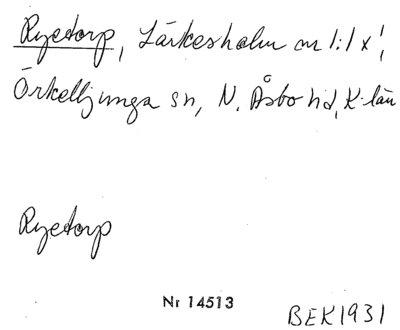 Ryetorp, Lärkesholm nr 1:1 x!,
Örkelljunga sn, N. Åsbo hd, K-län
Ryetorp
Nr 14513
BEK1931